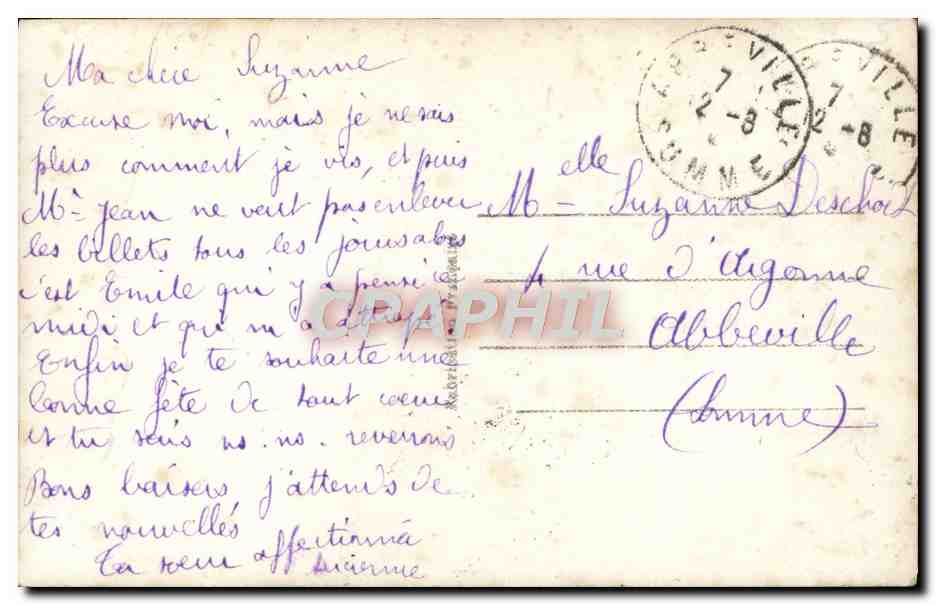 Ma chère Suzanne
Excuse moi, mais je ne sais
plus comment je vis, et puis
Mr Jean ne veut pas enlever
les billets tous les jours alors
c'est Emile qui y a pensé ce
midi et qui m'a attrapé
Enfin je te souhaite une
bonne fête de tout cœur
et tu sais ns. ns. reverrons
Bons baisers j'attends de
tes nouvelles
Ta sœur affectionnée
Lucienne
ABBEVILLE
7
12 -8
SOMME
BEVILLE
7
12 -8
Melle Suzanne
4 rue d'Argonne
Abbeville
(Somme)
Fabrication Française
CPAPHIL